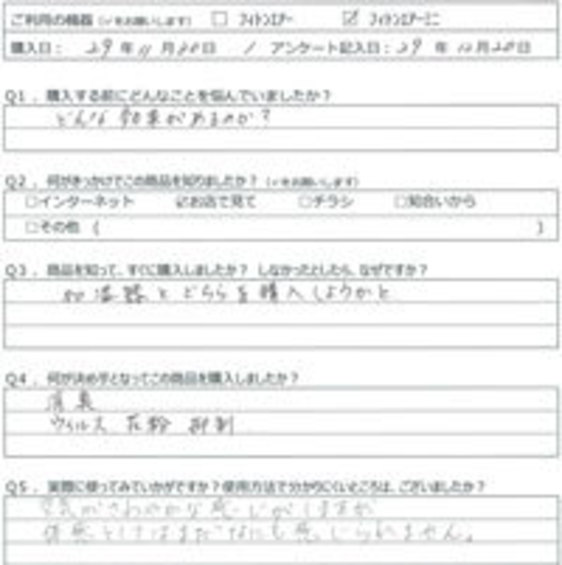 ご利用の機器 (✓をお願いします) □ フィトンエアー ☑ フィトンエアーミニ
購入日: 29年11月20日 / アンケート記入日: 29年12月20日
Q1. 購入する前にどんなことを悩んでいましたか?
どんな効果があるのか?
Q2. 何がきっかけでこの商品を知りましたか? (✓をお願いします)
□インターネット ☑お店で見て □チラシ □知合いから
□その他 ( )
Q3. 商品を知って、すぐに購入しましたか? しなかったとしたら、なぜですか?
加湿器とどちらを購入しようかと
Q4. 何が決め手となってこの商品を購入しましたか?
消臭
ウィルス 花粉 抑制
Q5. 実際に使ってみていかがですか?使用方法で分かりにくいところは、ございましたか?
空気がさわやかな感じがしますが
体感としてはまだなにも感じられません。